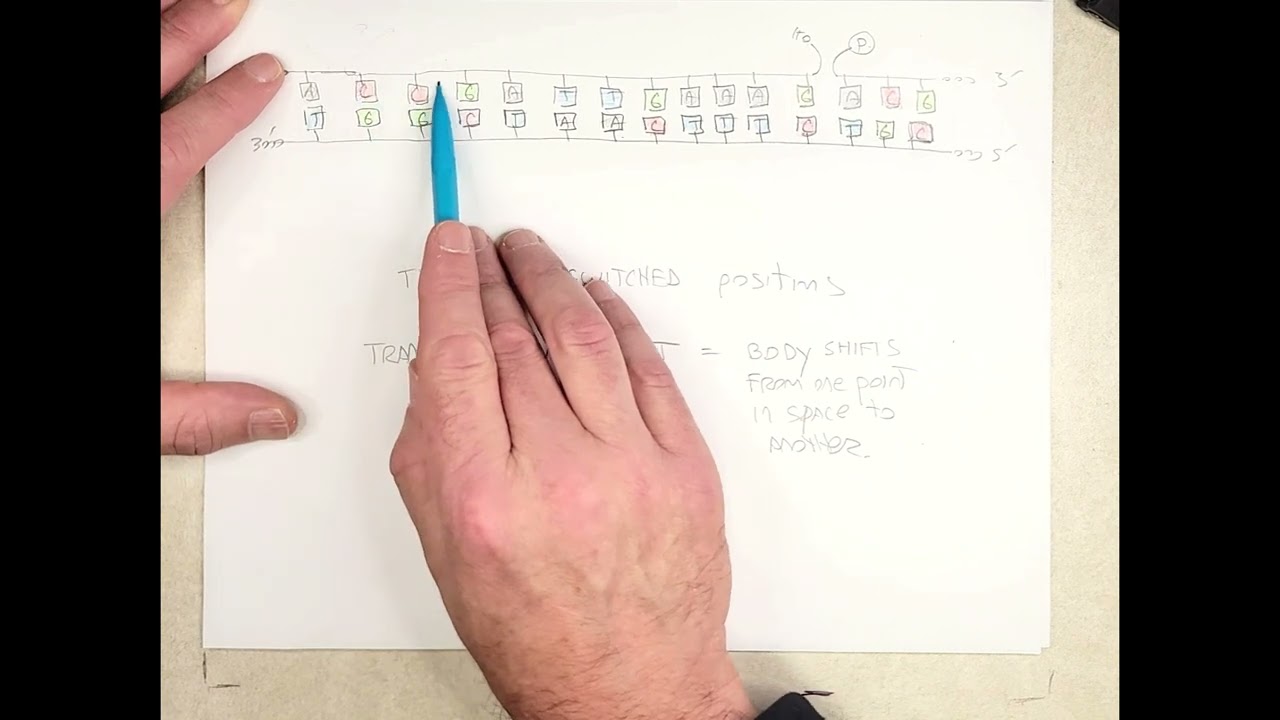 HO P
A C C G A T T G A A A G A C G 3'
T G G C T A A C T T T C T G C
3' 5'
SWITCHED positions
= BODY SHIFTS
FROM one point
in space to
another.